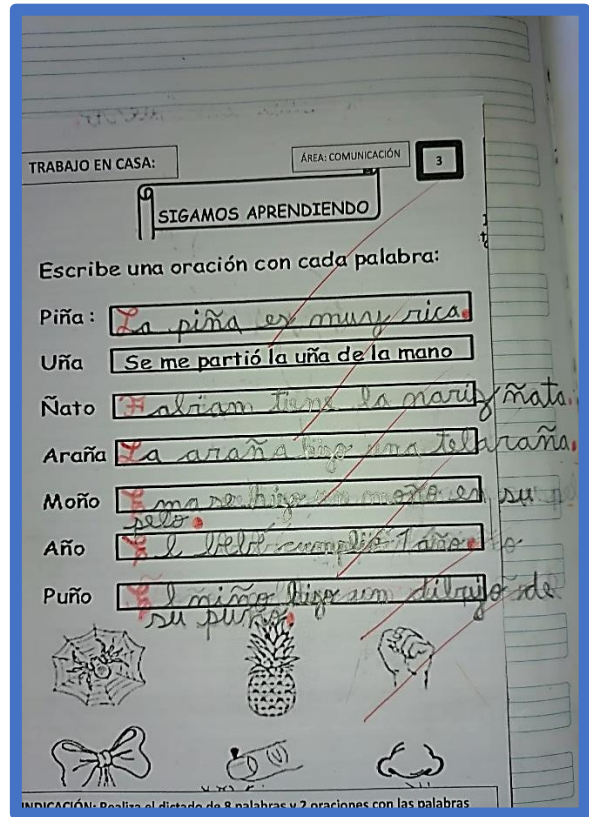 TRABAJO EN CASA:
ÁREA: COMUNICACIÓN
3
SIGAMOS APRENDIENDO
Escribe una oración con cada palabra:
Piña : La piña es muy rica.
Uña Se me partió la uña de la mano
Ñato Fabriam tiene la nariz ñata.
Araña La araña hizo una telaraña.
Moño ma se hizo un moño en su
pelo.
Año El bebé cumplió 1 año.
Puño El niño hizo un dibujo de
su puño.
INDICACIÓN: Realiza el dictado de 8 palabras y 2 oraciones con las palabras